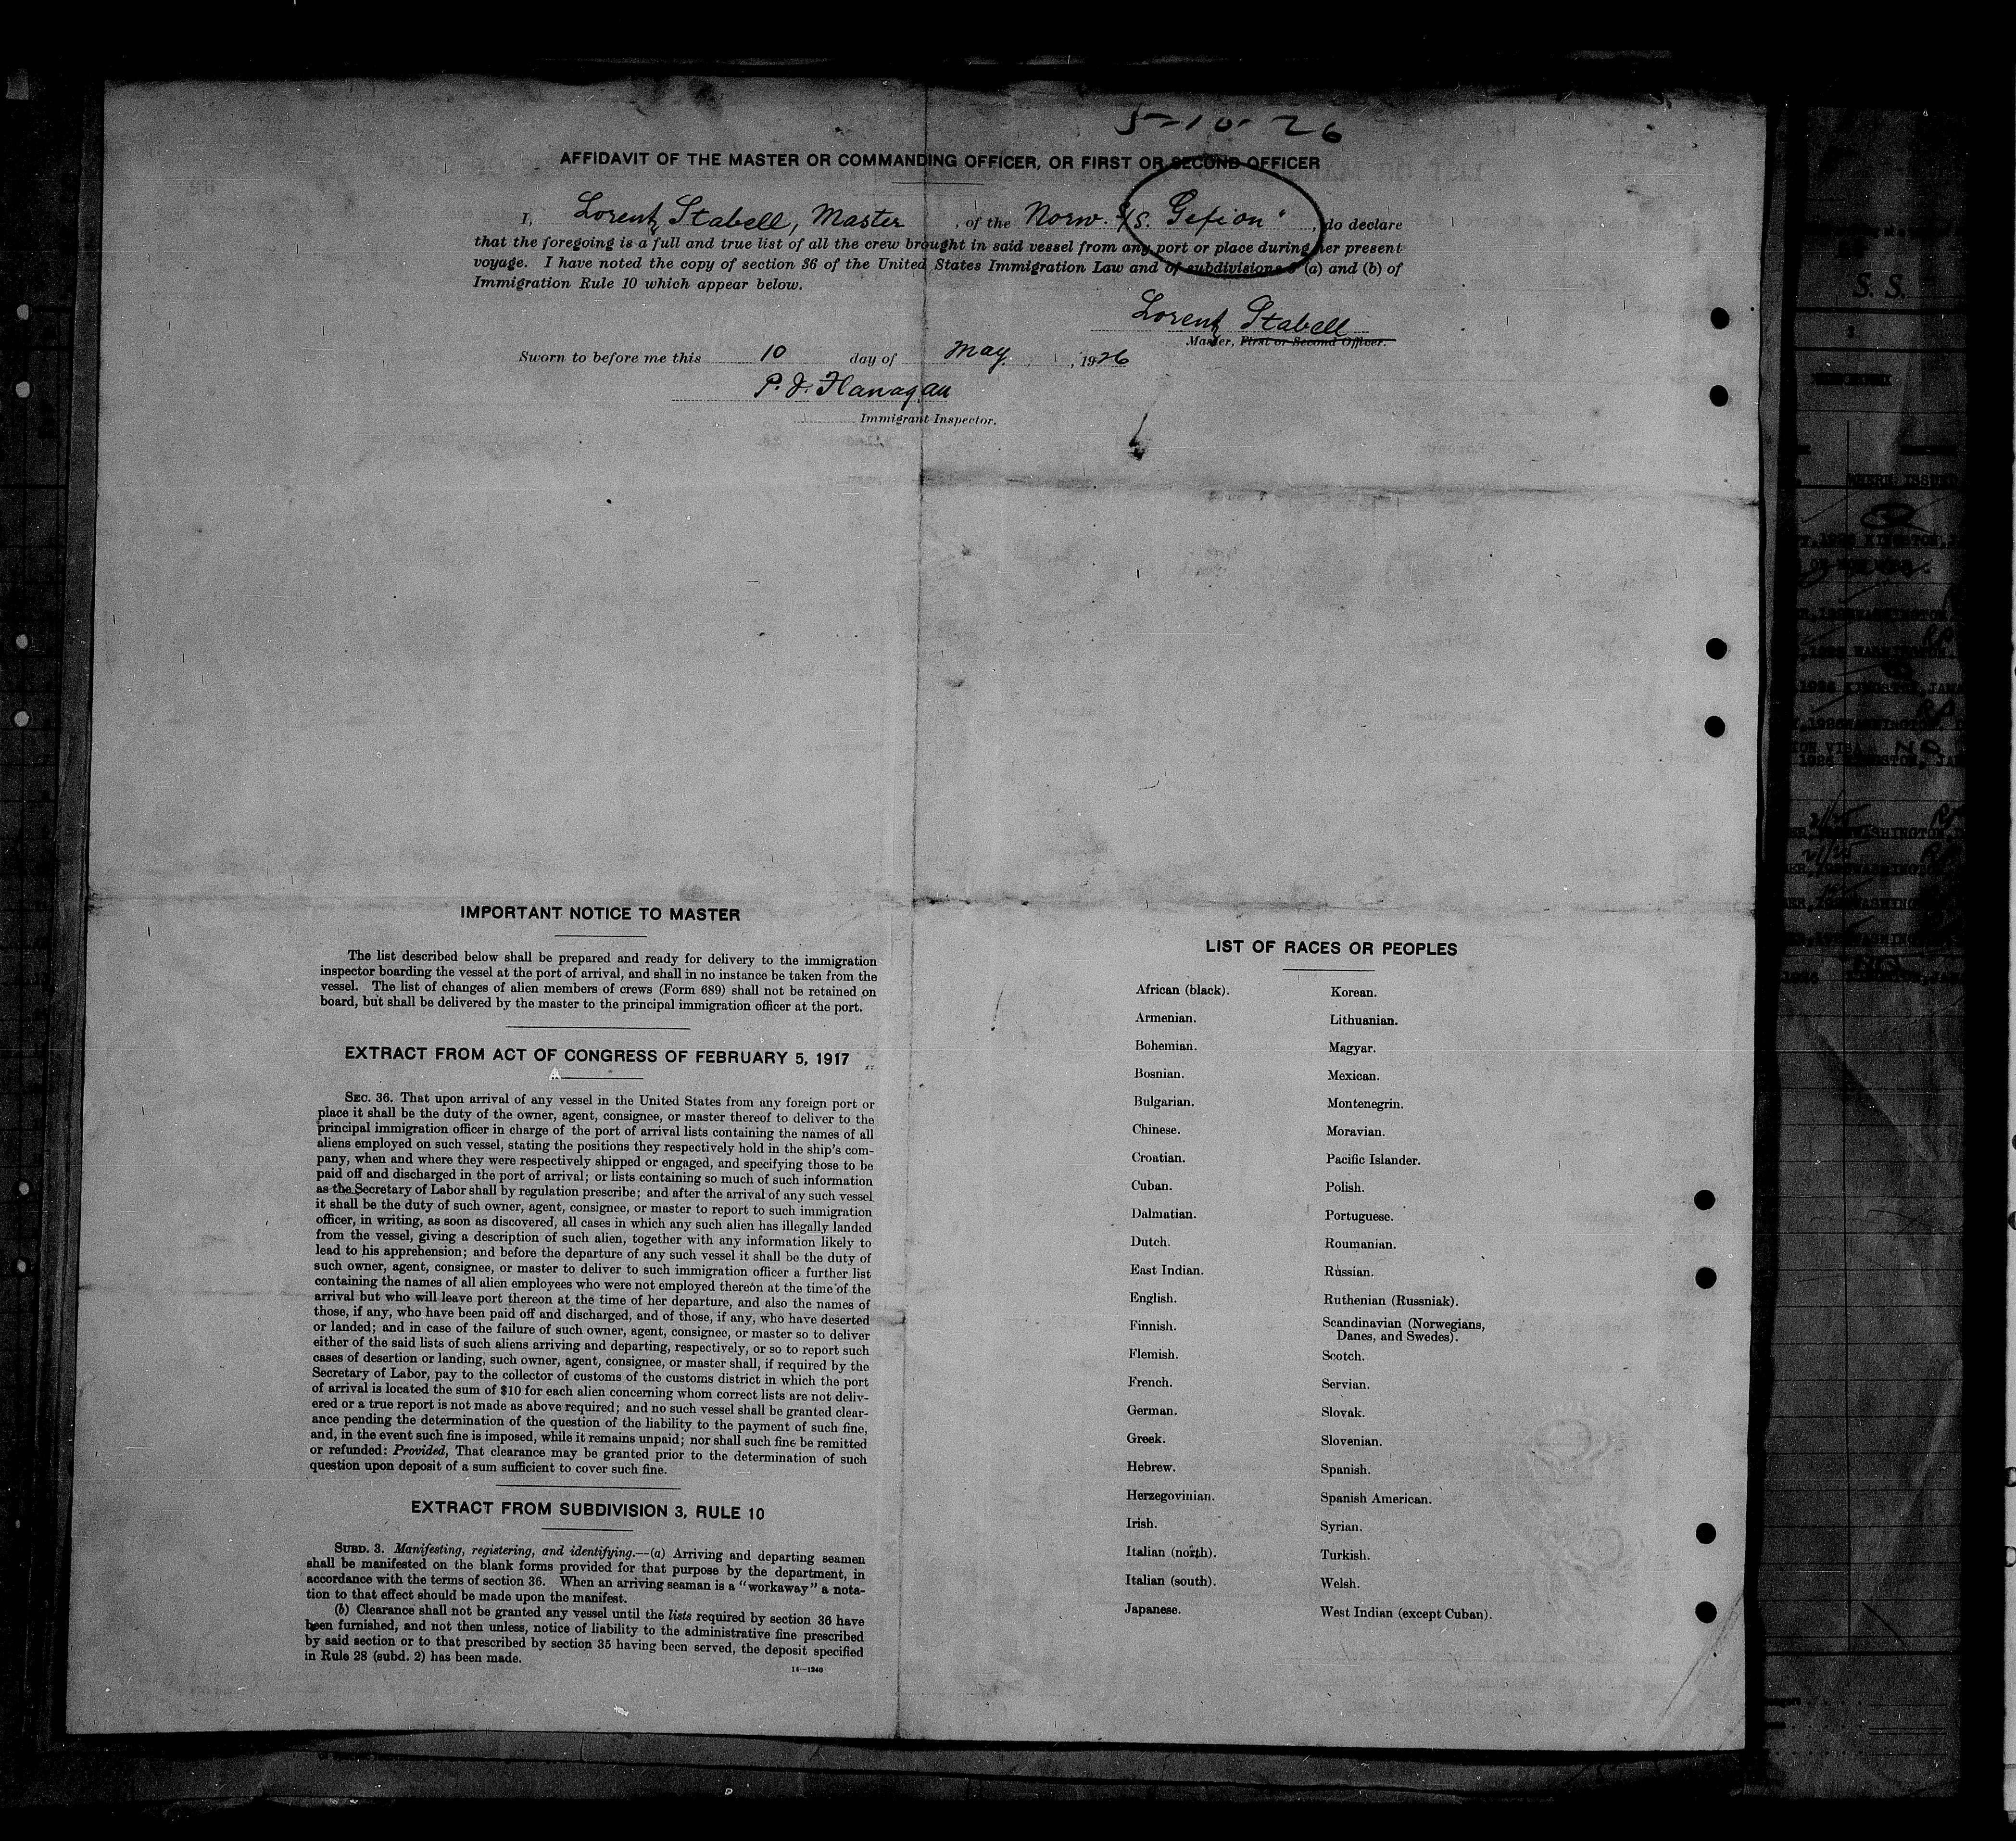 5-10-26
AFFIDAVIT OF THE MASTER OR COMMANDING OFFICER, OR FIRST OR SECOND OFFICER
I, Lorentz Stabell, Master, of the Norw. S/S. Gefion", do declare
that the foregoing is a full and true list of all the crew brought in said vessel from any port or place during her present
voyage. I have noted the copy of section 36 of the United States Immigration Law and of subdivisions 3 (a) and (b) of
Immigration Rule 10 which appear below.
Lorentz Stabell
Master, First or Second Officer.
Sworn to before me this 10 day of May, 1926
P. J. Flanagan
Immigrant Inspector.
IMPORTANT NOTICE TO MASTER
The list described below shall be prepared and ready for delivery to the immigration
inspector boarding the vessel at the port of arrival, and shall in no instance be taken from the
vessel. The list of changes of alien members of crews (Form 689) shall not be retained on
board, but shall be delivered by the master to the principal immigration officer at the port.
EXTRACT FROM ACT OF CONGRESS OF FEBRUARY 5, 1917
SEC. 36. That upon arrival of any vessel in the United States from any foreign port or
place it shall be the duty of the owner, agent, consignee, or master thereof to deliver to the
principal immigration officer in charge of the port of arrival lists containing the names of all
aliens employed on such vessel, stating the positions they respectively hold in the ship's com-
pany, when and where they were respectively shipped or engaged, and specifying those to be
paid off and discharged in the port of arrival; or lists containing so much of such information
as the Secretary of Labor shall by regulation prescribe; and after the arrival of any such vessel
it shall be the duty of such owner, agent, consignee, or master to report to such immigration
officer, in writing, as soon as discovered, all cases in which any such alien has illegally landed
from the vessel, giving a description of such alien, together with any information likely to
lead to his apprehension; and before the departure of any such vessel it shall be the duty of
such owner, agent, consignee, or master to deliver to such immigration officer a further list
containing the names of all alien employees who were not employed thereon at the time of the
arrival but who will leave port thereon at the time of her departure, and also the names of
those, if any, who have been paid off and discharged, and of those, if any, who have deserted
or landed; and in case of the failure of such owner, agent, consignee, or master so to deliver
either of the said lists of such aliens arriving and departing, respectively, or so to report such
cases of desertion or landing, such owner, agent, consignee, or master shall, if required by the
Secretary of Labor, pay to the collector of customs of the customs district in which the port
of arrival is located the sum of $10 for each alien concerning whom correct lists are not deliv-
ered or a true report is not made as above required; and no such vessel shall be granted clear-
ance pending the determination of the question of the liability to the payment of such fine,
and, in the event such fine is imposed, while it remains unpaid; nor shall such fine be remitted
or refunded: Provided, That clearance may be granted prior to the determination of such
question upon deposit of a sum sufficient to cover such fine.
EXTRACT FROM SUBDIVISION 3, RULE 10
SUBD. 3. Manifesting, registering, and identifying.—(a) Arriving and departing seamen
shall be manifested on the blank forms provided for that purpose by the department, in
accordance with the terms of section 36. When an arriving seaman is a "workaway" a nota-
tion to that effect should be made upon the manifest.
(b) Clearance shall not be granted any vessel until the lists required by section 36 have
been furnished, and not then unless, notice of liability to the administrative fine prescribed
by said section or to that prescribed by section 35 having been served, the deposit specified
in Rule 28 (subd. 2) has been made.
14—1240
LIST OF RACES OR PEOPLES
African (black).
Armenian.
Bohemian.
Bosnian.
Bulgarian.
Chinese.
Croatian.
Cuban.
Dalmatian.
Dutch.
East Indian.
English.
Finnish.
Flemish.
French.
German.
Greek.
Hebrew.
Herzegovinian.
Irish.
Italian (north).
Italian (south).
Japanese.
Korean.
Lithuanian.
Magyar.
Mexican.
Montenegrin.
Moravian.
Pacific Islander.
Polish.
Portuguese.
Roumanian.
Russian.
Ruthenian (Russniak).
Scandinavian (Norwegians,
Danes, and Swedes).
Scotch.
Servian.
Slovak.
Slovenian.
Spanish.
Spanish American.
Syrian.
Turkish.
Welsh.
West Indian (except Cuban).
S. S.
WHERE ISSUED